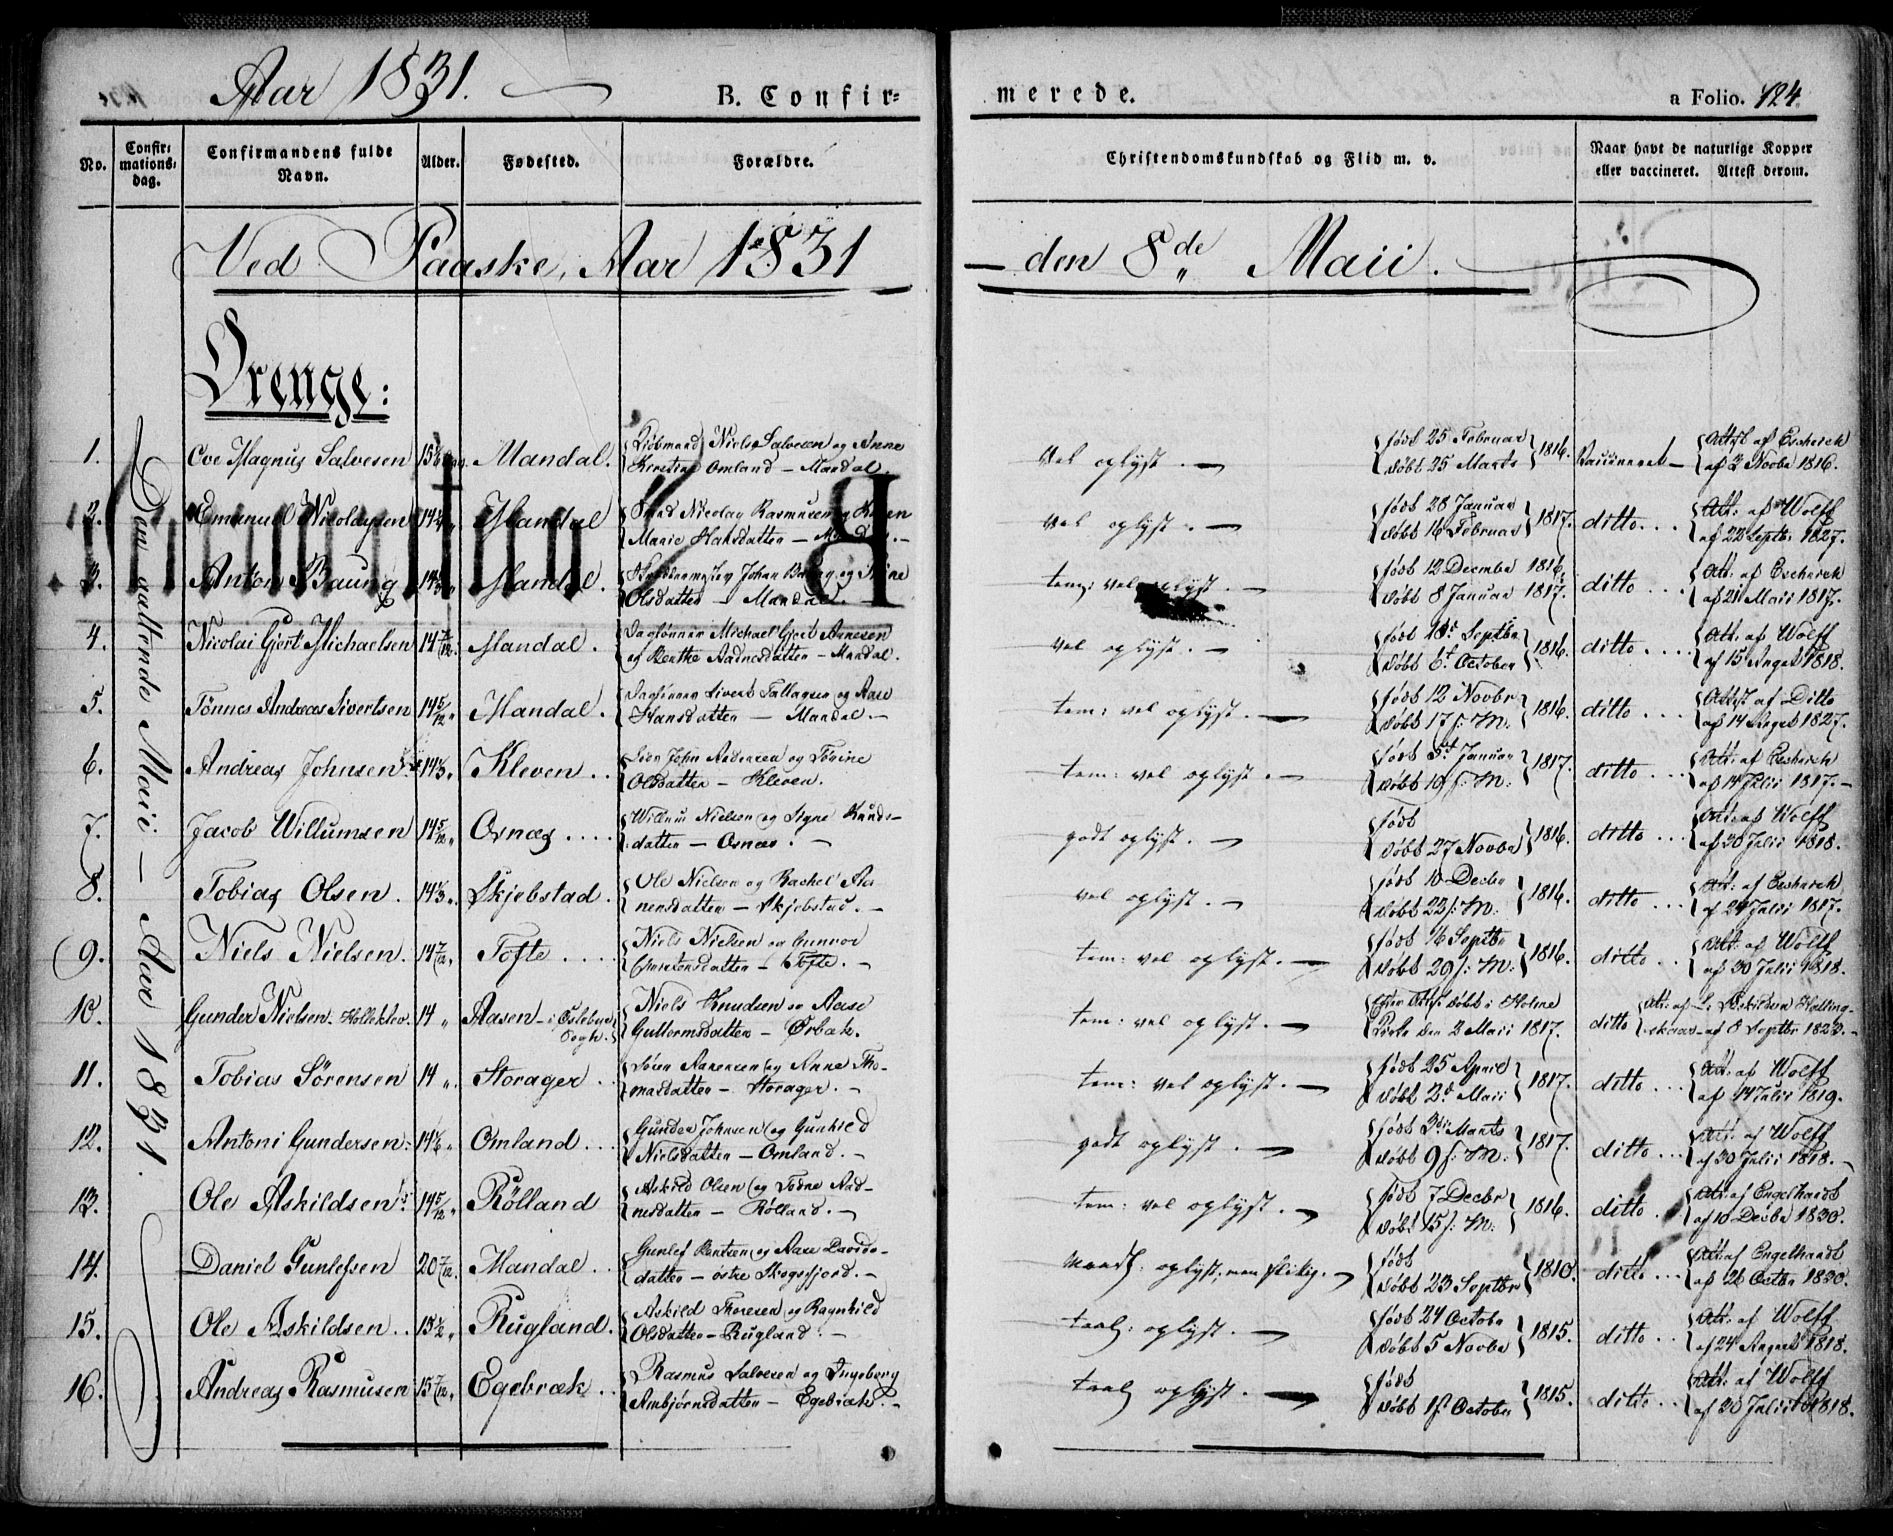 Aar 1831.
B. Confirmerede.
a Folio. 124.
No.
Confirmationsdag.
Confirmandens fulde Navn.
Alder.
Fødested.
Forældre.
Christendomskundskab og Flid m. v.
Naar havt de naturlige Kopper eller vaccineret. Attest derom.
Ved Paaske, Aar 1831 — den 8de Maii.
Drenge:
Den ottende Maii — Aar 1831.
1. Ove Magnus Salvesen Mandal. Niels Salvesen og Anne
Kirstine Omland — Mandal. Vel oplyst. — født 25 Februar døbt 25 Marts 1816. Vaccineret — Attest af Escherich af 2 Novbr 1816.
2. Emanuel Nicolaysen Mandal Nicolay Rasmussen og Karen
Marie Hansdatter — vel oplyst. — født 28 Januar døbt 16 Februar 1817. ditto Att: af Wolff af 22 Septbr 1827.
3. Anton Baung Mandal. Johan Baung og
Olsdatter — Mandal. tem: vel oplyst. — født 12 December 1816. døbt 8 Januar 1817. ditto Att: af Escherich af 21 Maii 1817.
4. Nicolai Gjert Michaelsen 14 7/12. Mandal. Michael Gjert Annesen
og Berthe Aadnesdatter — Mandal. vel oplyst. — født Septbr døbt 6t October 1816. ditto Att: af Wolff af 15 August 1818.
5. Tönnes Andreas Sivertsen 14 5/12 Mandal. Sivert Tallagsen og Aase
Hansdatter — Mandal. — tem: vel oplyst. — født 12 Novbr døbt 17 s: M. 1816. ditto Attest af Ditto af 14 August 1827.
6. Andreas Johnsen 14 1/3 Kleven. John Andersen og
Olsdatter — Kleven. tem: vel oplyst. — født Januar døbt 19 s: M: 1817. ditto Att: af Escherich af 14 Julii 1817. —
7. Jacob Willumsen 14 5/12 Osnæs. Willum Nielsen og Signe Knuds-
datter — Osnæs. — godt oplyst. — født døbt 27 Novbr 1816. ditto Att: af Wolff af 30 Julii 1818.
8. Tobias Olsen. 14 1/3 Skjebstad. Ole Nielsen og Rachel Aa-
nensdatter — Skjebstad. — vel oplyst. — født 10 Decbr døbt 22 s: M: 1816. ditto Att: af Escherich af 24 Julii 1817.
9. Niels Nielsen. 14 7/12. Tofte Niels Nielsen og Gunvor
datter — Tofte. — tem: vel oplyst. — født 16 Septbr døbt 29 s: M: 1816. ditto Att: af Wolff af 30 Julii 1818.
10. Gunder Nielsen. 14 Aasen — i Öslebue Sogn. Niels Knudsen og Aase
Guttormsdatter — Örbæk. tem: vel oplyst. — døbt i Holme Kirke den 2 Maii 1817. ditto Att: af
11. Tobias Sörensen 14 Storager. Sören Aanensen og Anne Tho-
masdatter — Storager. — tem: vel oplyst. — født 25 April døbt 2d Maii 1817. ditto Att: af Wolff af 14 Julii 1819.
12. Antoni Gundersen: 14 1/6 Omland Gunder Johnsen og Gunhild
Nielsdatter — Omland. — godt oplyst. — født Marts døbt 9 s: M: 1817. ditto Att: af Wolff af 30 Julii 1818. —
13. Ole Askildsen 14 5/12 Rölland Askild Olsen og Aad-
nesdatter — Rölland. — tem: vel oplyst. — født 7 Decbr døbt 15 s: M: 1816. ditto Att: af Engelhardt af 10 Decbr 1830.
14. Daniel Gunlefsen 20 7/12. Mandal. Gunlef Berntsen og Aase Davids-
datter — östre Skogsfjord. — oplyst, men flitig. — født døbt 23 Septbr 1810. ditto Att: af Engelhardt af 26 Octbr 1830.
15. Ole Askildsen 15 1/2 Rugland. Askild Thoresen og Ragnhild
Olsdatter — Rugland. — taal: oplyst. — født 24 Octobr døbt 5 Novbr 1815. ditto Att: af Wolff af 24 August 1818.
16. Andreas Rasmusen 15 7/12 Egebræk Rasmus Salvesen og Ingeborg
Ambjörnsdatter — Egebræk. — taal oplyst. — født døbt 1st October 1815. ditto Att: af Wolff af 30 Julii 1818.